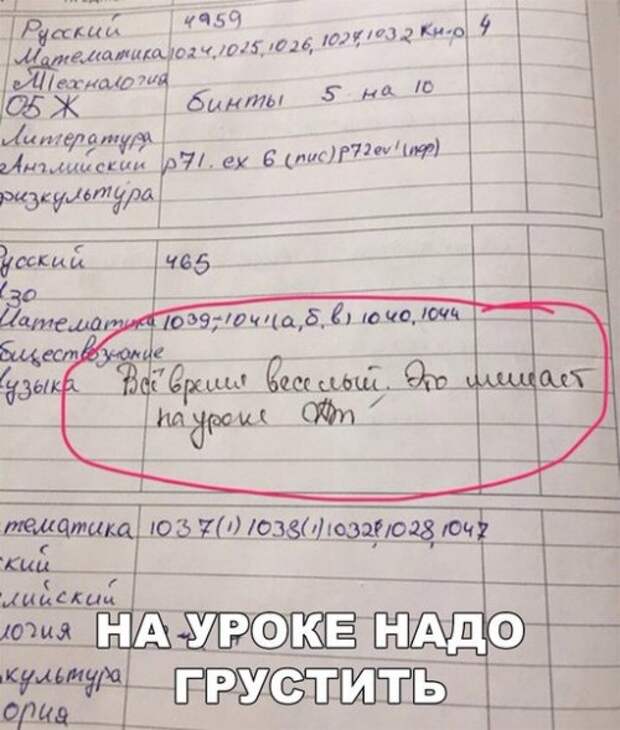 Русский 4959
Математика 1024, 1025, 1026, 1027, 1032 Кн-р 4
Технология
ОБЖ бинты 5 на 10
Литература
Английский р71. ex 6 (пис) р72 ev1 (пер)
физкультура
Русский 465
ИЗО
Математика 1039, 1041 (а, б, в) 1040, 1044
бществознание
узыка Всё время веселый. Это мешает
на уроке
тематика 1037(1) 1038(1) 1032, 1028, 1047
кий
лийский
логия
культура
ория
НА УРОКЕ НАДО
ГРУСТИТЬ